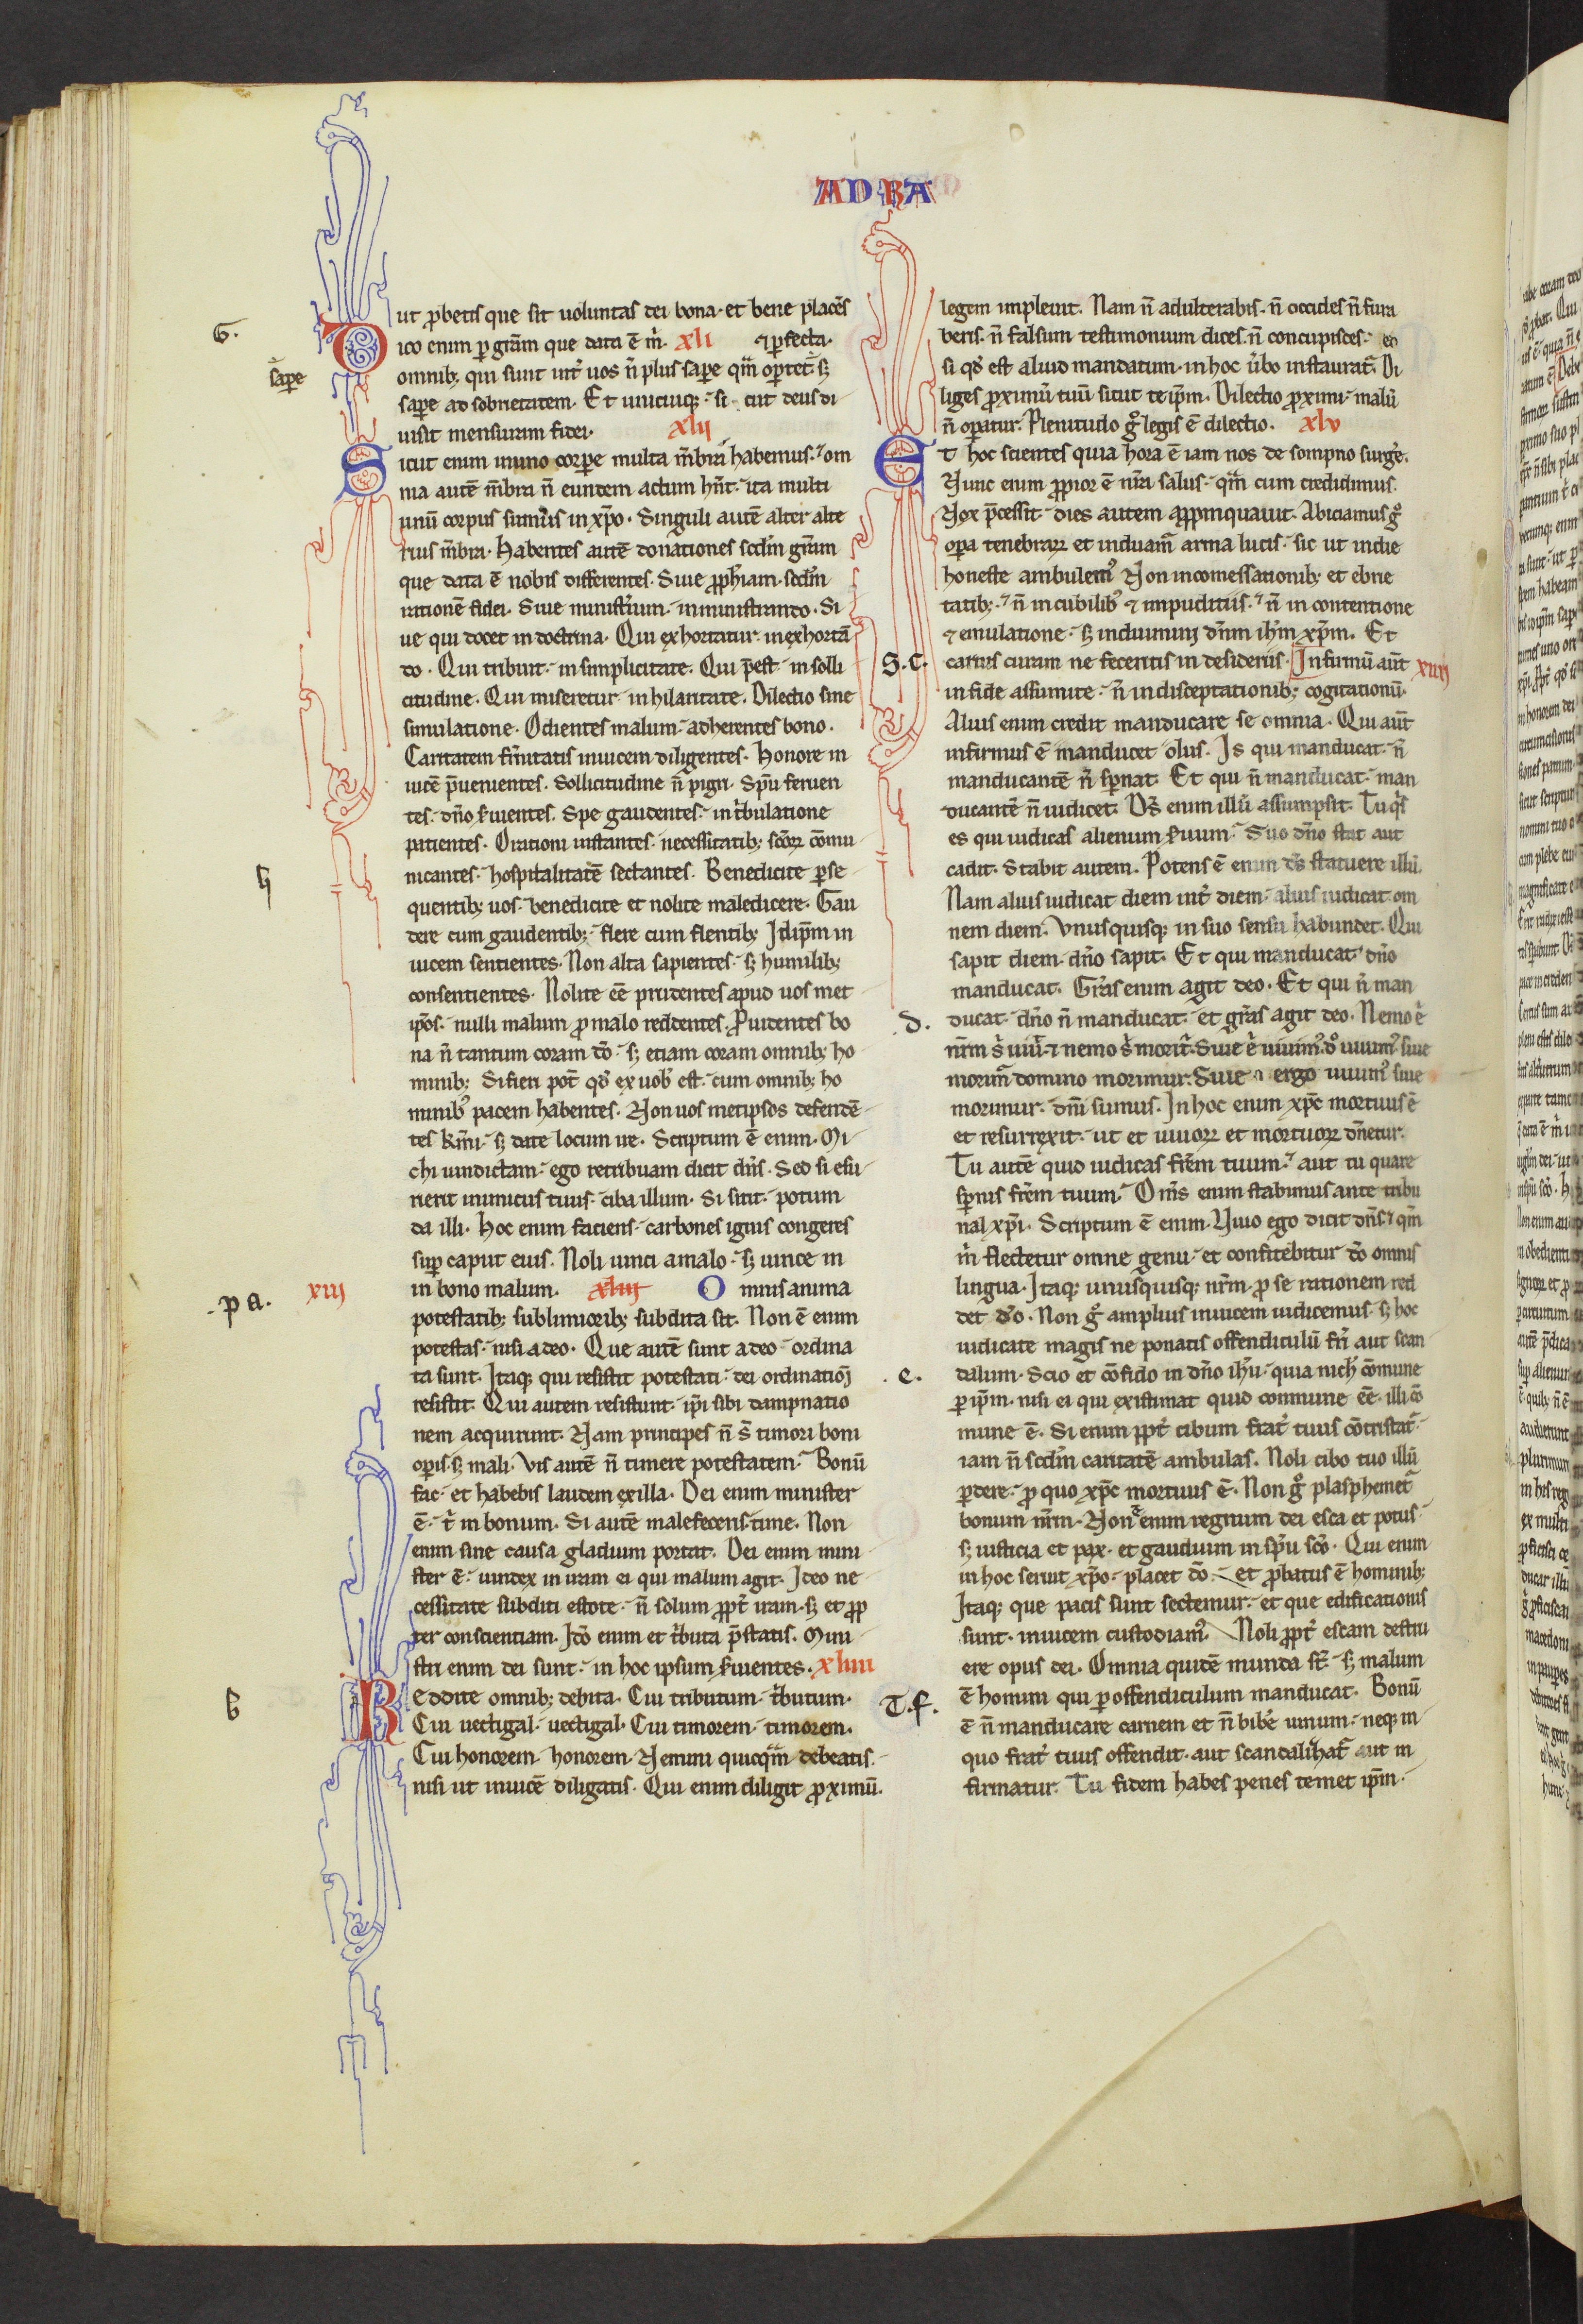 AD RA
ut ꝓbetis que sit uoluntas dei bona· et bene placēs
Dico enim ꝑ gr̄am que data ē m̄· xli ⁊ ꝑfecta·
omnib; qui sunt int̄ uos n̄ plus saꝑe qm̄ oꝑtet sꝫ
saꝑe ad sobrietatem. Et unicuiqꝫ· si cut deus di
uisit mensuram fidei. xlii
Sicut enim in uno corꝑe multa m̄bra habemus· ⁊ om
nia autē m̄bra n̄ eundem actum hn̄t· ita multi
unū corpus sumus in xp̄o. Singuli autē alter alte
rius m̄bra. Habentes autē donationes scd̄m gr̄am
que data ē nobis differentes. Siue ꝓph̄iam· scd̄m
rationē fidei. Siue ministīium· in ministrando. Si
ue qui docet in doctrina. Qui exhortatur· in exhortā
do. Qui tribuit· in simplicitate. Qui p̄est· in solli
citudine. Qui miseretur· in hilaritate. Dilectio sine
simulatione. Odientes malum· adherentes bono.
Caritatem fr̄nitatis inuicem diligentes. Honore in
uicē p̄uenientes. Sollicitudine n̄ pigri. Sp̄u feruen
tes· dn̄o s̄uientes. Spe gaudentes· in t̄bulatione
patientes. Orationi instantes· necessitatib; sc̄oꝝ cōmu
nicantes· hospitalitatē sectantes. Benedicite ꝑse
quentib; uos· benedicite et nolite maledicere. Gau
dere cum gaudentib;· flere cum flentib; Idip̄m in
uicem sentientes. Non alta sapientes· sꝫ humilib;
consentientes. Nolite ēe prudentes apud uos met
ip̄os· nulli malum ꝓ malo reddentes. Ꝓuidentes bo
na n̄ tantum coram dō· sꝫ etiam coram omnib; ho
minib; Si fieri pot̄ qd̄ ex uob̄ est· cum omnib; ho
minib; pacem habentes. Non uos metipsos defendē
tes km̄i· sꝫ date locum ire. Scriptum ē enim. Mi
chi uindictam· ego retribuam dicit dn̄s. Sed si esu
rierit inimicus tuus· ciba illum. Si sitit· potum
da illi. Hoc enim faciens· carbones ignis congeres
suꝑ caput eius. Noli uinci a malo· sꝫ uince in
in bono malum. xliii Omnis anima
potestatib; sublimiorib; subdita sit. Non ē enim
potestas· nisi a deo. Que autē sunt a deo· ordina
ta sunt. Itaqꝫ qui resistit potestati· dei ordinationi
resistit. Qui autem resistunt· ip̄i sibi dampnatio
nem acquirunt. Nam principes n̄ s̄t timori boni
oꝑis· sꝫ mali. Vis autē n̄ timere potestatem· Bonū
fac· et habebis laudem ex illa. Dei enim minister
ē· t̄ in bonum. Si autē malefeceris time. Non
enim sine causa gladium portat. Dei enim mini
ster ē· uindex in iram ei qui malum agit. Ideo ne
cessitate subditi estote· n̄ solum ꝓpt̄ iram· sꝫ et ꝓp
ter conscientiam. Idō enim et t̄buta p̄statis. Mini
stri enim dei sunt· in hoc ipsum s̄uientes. xliiii
Reddite omnib; debita. Cui tributum· t̄butum.
Cui uectigal· uectigal. Cui timorem· timorem.
Cui honorem· honorem. Nemini quicqm̄ debeatis·
nisi ut inuicē diligatis. Qui enim diligit ꝓximū.
legem impleuit. Nam n̄ adulterabis· n̄ occides n̄ fura
beris· n̄ falsum testimonium dices· n̄ concupisces· et
si qd̄ est aliud mandatum· in hoc ūbo instaurat̄. Di
liges ꝓximū tuū sicut te ip̄m. Dilectio ꝓximi· malū
n̄ oꝑatur. Plenitudo g̊ legis ē dilectio. xlv
Et hoc scientes quia hora ē iam nos de sompno surge̅.
Nunc enim ꝓpior ē nr̄a salus· qm̄ cum credidimus.
Nox p̄cessit· dies autem appropinquauit. Abiciamus g̊
oꝑa tenebraꝝ et induam̄ arma lucis· sic ut in die
honeste ambulem⁹ Non in comessationib; et ebrie
tatib;· ⁊ n̄ in cubilib⁹ ⁊ impuditiis· ⁊ n̄ in contentione
⁊ emulatione· sꝫ induimini dn̄m ih̄m xp̄m. Et
carnis curam ne feceritis in desideriis. Infirmū aūt xiiii
in fide assumite· n̄ in disceptationib; cogitationū.
Alius enim credit manducare se omnia. Qui aūt
infirmus ē manducet olus. Is qui manducat· n̄
manducantē n̄ sꝑnat. Et qui n̄ manducat· man
ducantē n̄ iudicet. Ds̄ enim illū assumpsit. Tu qs̄
es qui iudicas alienum s̄uum· Suo dn̄o stat aut
cadit. Stabit autem. Potens ē enim ds̄ statuere illū.
Nam alius iudicat diem int̄ diem· alius iudicat om
nem diem. Vnusquisqꝫ in suo sensu habundet. Qui
sapit diem· dn̄o sapit. Et qui manducat· dn̄o
manducat. Gr̄as enim agit deo. Et qui n̄ man
ducat· dn̄o n̄ manducat· et gr̄as agit deo. Nemo e̅
nr̄m s̄ uiu̅· ⁊ nemo s̄ morit̄. Siue e̅ uiuim⁹ do̅ uiuim⁹ siue
morim̄ domino morimur. Siue ergo uiuim⁹ siue
morimur· dn̄i sumus. In hoc enim xp̄c mortuus ē
et resurrexit· ut et uiuoꝝ et mortuoꝝ dn̄etur.
Tu autē quid iudicas frēm tuum· aut tu quare
sꝑnis frēm tuum· Om̄s enim stabimus ante tribu
nal xp̄i. Scriptum ē enim. Viuo ego dicit dn̄s· qm̄
m̄ flectetur omne genu· et confitebitur dō omnis
lingua. Itaqꝫ unusquisqꝫ nr̄m· ꝓ se rationem red
det d̄o. Non g̊ amplius inuicem iudicemus· sꝫ hoc
iudicate magis ne ponatis offendiculū fr̄i aut scan
dalum. Scio et cōfido in dn̄o ih̄u· quia nich̄ cōmune
ꝑ ip̄m· nisi ei qui existimat quid commune ēe· illi cō
mune ē. Si enim ꝓpt̄ cibum frat̄ tuus cōtristat̄·
iam n̄ scd̄m caritatē ambulas. Noli cibo tuo illū
ꝑdere· ꝓ quo xp̄c mortuus ē. Non g̊ plasphemet̄
bonum nr̄m. Non ē enim regnum dei esca et potus·
sꝫ iusticia et pax· et gaudium in sp̄u sc̄o. Qui enim
in hoc seruit xp̄o· placet dō· et ꝓbatus ē hominib;
Itaqꝫ que pacis sunt sectemur· et que edificationis
sunt· inuicem custodiam⁹. Noli ꝓpt̄ escam destru
ere opus dei. Omnia quidē munda s̄t· sꝫ malum
ē homini qui ꝑ offendiculum manducat. Bonū
ē n̄ manducare carnem et n̄ bibe̅ uinum· neqꝫ in
quo frat̄ tuus offendit· aut scandalizat̄ aut in
firmatur. Tu fidem habes penes temet ip̄m·
G.
saꝑe
h
.p a. xiii
b
S. c.
d.
.e.
T. f.